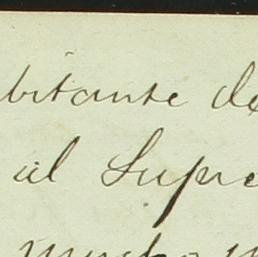 bitante de
al Supre
mucho